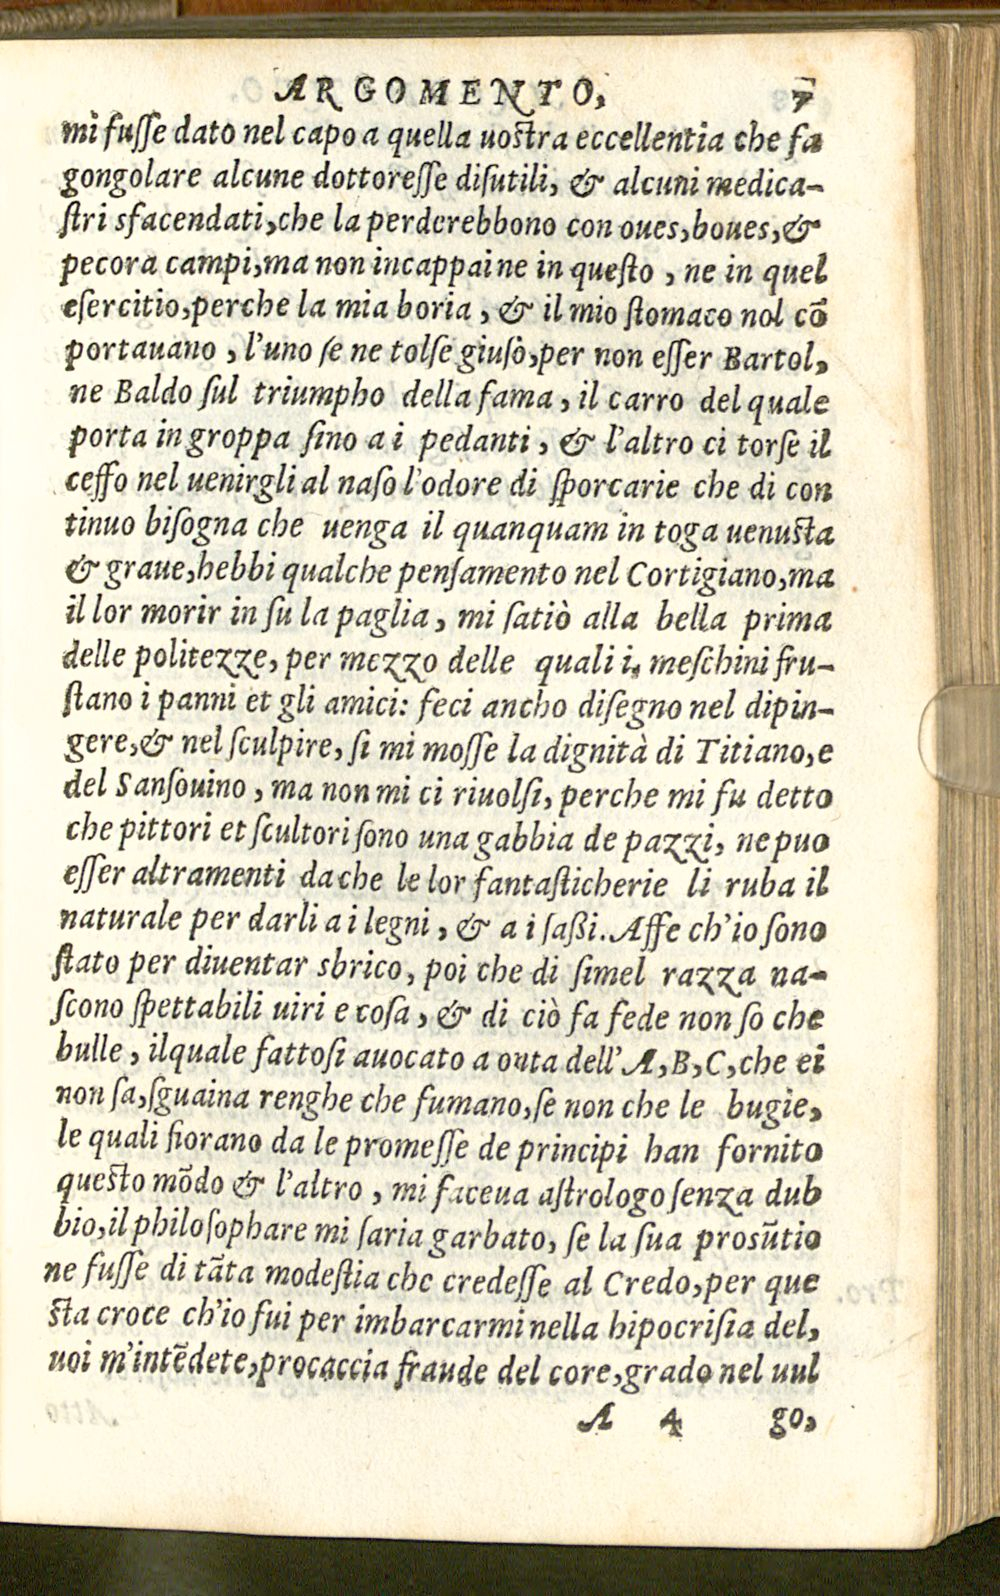 ARGOMENTO, 7
mi fusse dato nel capo a quella uostra eccellentia che fa
gongolare alcune dottoresse disutili, & alcuni medica-
stri sfacendati, che la perderebbono con oues, boues, &
pecora campi, ma non incappai ne in questo, ne in quel
esercitio, perche la mia boria, & il mio stomaco nol cõ
portauano, l'uno se ne tolse giusò, per non esser Bartol,
ne Baldo sul triumpho della fama, il carro del quale
porta in groppa sino a i pedanti, & l'altro ci torse il
ceffo nel uenirgli al naso l'odore di sporcarie che di con
tinuo bisogna che uenga il quanquam in toga uenusta
& graue, hebbi qualche pensamento nel Cortigiano, ma
il lor morir in su la paglia, mi satiò alla bella prima
delle politezze, per mezzo delle quali i, meschini fru-
stano i panni et gli amici: feci ancho disegno nel dipin-
gere, & nel sculpire, si mi mosse la dignità di Titiano, e
del Sansouino, ma non mi ci riuolsi, perche mi fu detto
che pittori et scultori sono una gabbia de pazzi, ne puo
esser altramenti da che le lor fantasticherie li ruba il
naturale per darli a i legni, & a i saßi. Affe ch'io sono
stato per diuentar sbrico, poi che di simel razza na-
scono spettabili uiri e cosa, & di ciò fa fede non so che
bulle, ilquale fattosi auocato a onta dell' A, B, C, che ei
non sa, sguaina renghe che fumano, se non che le bugie,
le quali fiorano da le promesse de principi han fornito
questo mõdo & l'altro, mi faceua astrologo senza dub
bio, il philosophare mi saria garbato, se la sua prosũtio
ne fusse di tãta modestia che credesse al Credo, per que
sta croce ch'io fui per imbarcarmi nella hipocrisia del,
uoi m'intẽdete, procaccia fraude del core, grado nel uul
A 4 go,